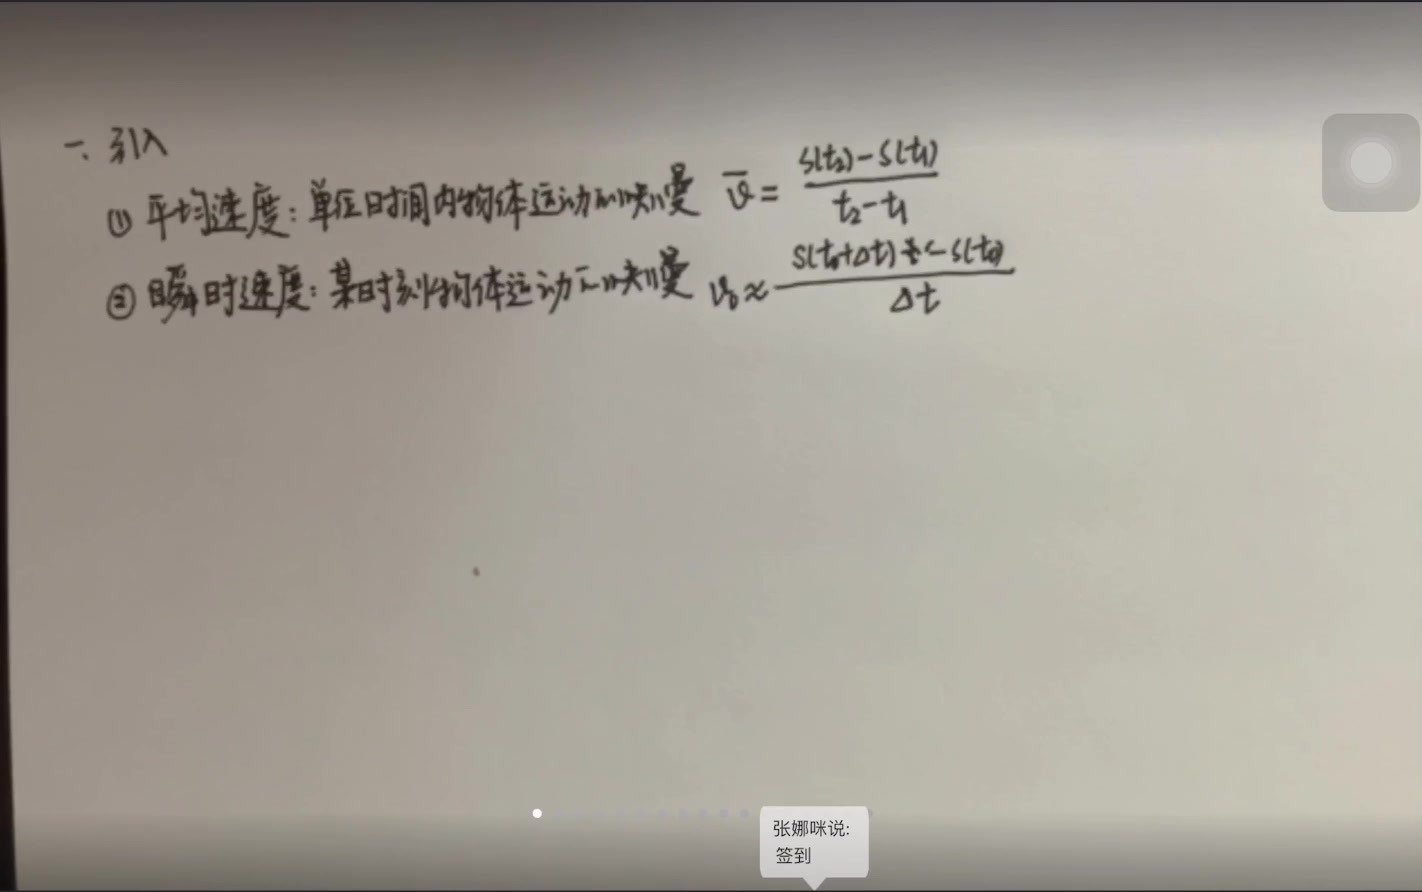 一、引入
① 平均速度：单位时间内物体运动的快慢 v̄ = (S(t₂)-S(t₁))/(t₂-t₁)
② 瞬时速度：某时刻物体运动的快慢 v₀ ≈ (S(t₀+Δt)-S(t₀))/Δt
张娜咪说:
签到